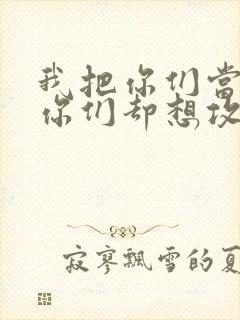 我把你们当
你们却想攻
寂寥飘雪的夏